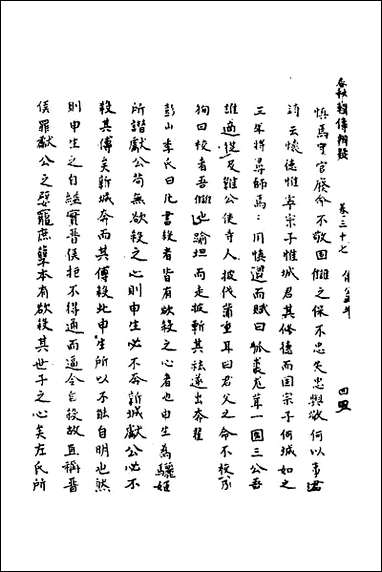 春秋輯傳辨疑 卷三十七 僖公 四
慎焉守官廢命不敬固讎之保不忠失忠與敬何以事君
詩云懷德惟寧宗子惟城君其修德而固宗子何城如之
三年將尋師焉焉用慎退而賦曰狐裘尨茸一國三公吾
誰適從及難公使寺人披伐蒲重耳曰君父之命不校乃
狥曰校者吾讎也踰垣而走披斬其袪遂出奔翟
彭山季氏曰此書殺者皆有欲殺之心者也申生為驪姬
所譖獻公苟無欲殺之心則申生必不奔新城獻公必不
殺其傅矣新城奔而其傅殺此申生所以不能自明也然
則申生之自縊實晉侯拒不得通而逼令自殺故直稱晉
侯罪獻公之嬖寵庶孽本有欲殺其世子之心矣左氏所